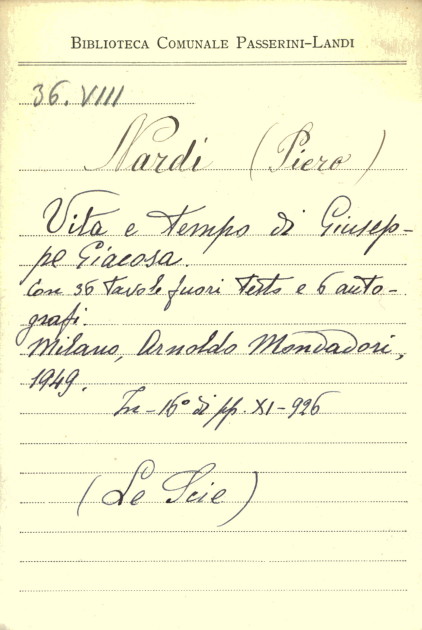 BIBLIOTECA COMUNALE PASSERINI-LANDI
36. VIII
Nardi (Piero)
Vita e tempo di Giusep-
pe Giacosa.
Con 36 tavole fuori testo e 6 auto-
grafi.
Milano, Arnoldo Mondadori,
1949.
In-16° di pp. XI-926
(Le Scie)